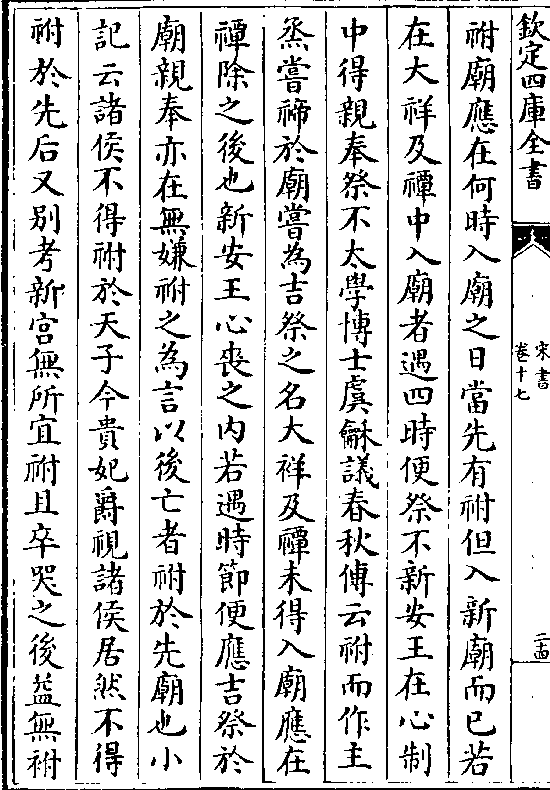 欽定四庫全書
宋書
卷十七
二十四
祔廟應在何時入廟之日當先有祔但入新廟而已若
在大祥及禫中入廟者遇四時便祭不新安王在心制
中得親奉祭不太學博士虞龢議春秋傳云祔而作主
烝嘗禘於廟嘗為吉祭之名大祥及禫未得入廟應在
禫除之後也新安王心喪之内若遇時節便應吉祭於
廟親奉亦在無嫌祔之為言以後亡者祔於先廟也小
記云諸侯不得祔於天子今貴妃爵視諸侯居然不得
祔於先后又别考新宫無所宜祔且卒哭之後益無祔